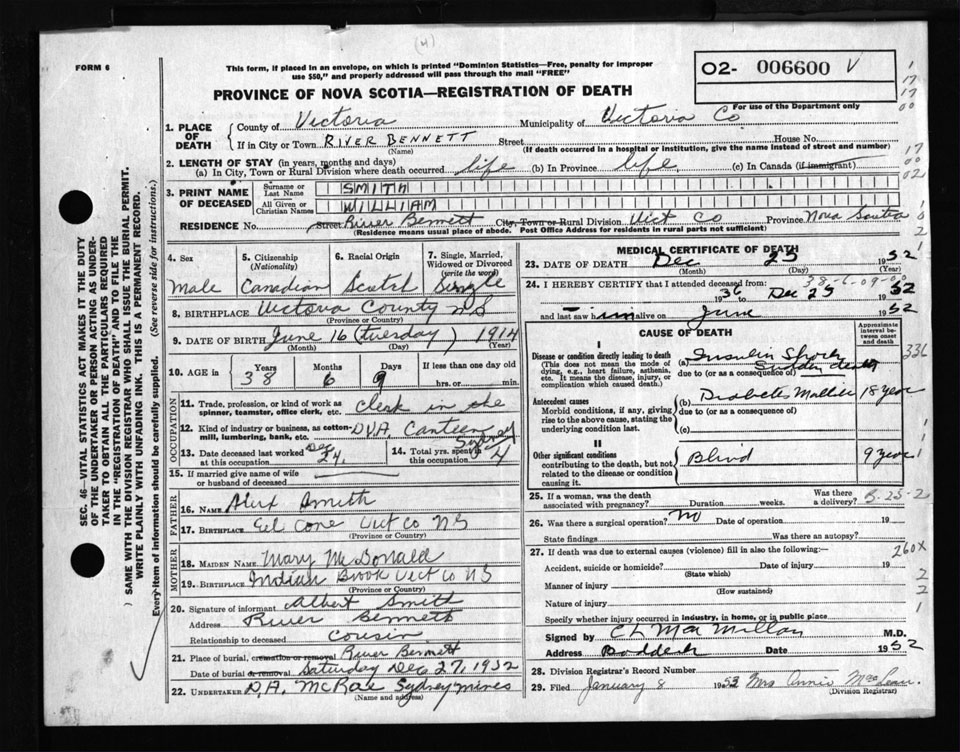 (4)
FORM 6
This form, if placed in an envelope, on which is printed "Dominion Statistics—Free, penalty for improper
use $50," and properly addressed will pass through the mail "FREE"
PROVINCE OF NOVA SCOTIA—REGISTRATION OF DEATH
02- 006600 V
For use of the Department only
1. PLACE OF DEATH
County of Victoria Municipality of Victoria Co
If in City or Town RIVER BENNETT Street House No.
(Name) (If death occurred in a hospital or institution, give the name instead of street and number)
2. LENGTH OF STAY (in years, months and days)
(a) In City, Town or Rural Division where death occurred life (b) In Province life (c) In Canada (if immigrant)
3. PRINT NAME OF DECEASED
Surname or Last Name SMITH
All Given or Christian Names WILLIAM
RESIDENCE No. Street River Bennett City, Town or Rural Division Vict Co Province Nova Scotia
(Residence means usual place of abode. Post Office Address for residents in rural parts not sufficient)
4. Sex Male
5. Citizenship (Nationality) Canadian
6. Racial Origin Scotch
7. Single, Married, Widowed or Divorced (write the word) Single
8. BIRTHPLACE Victoria County NS
(Province or Country)
9. DATE OF BIRTH June 16 (tuesday) 1914
(Month) (Day) (Year)
10. AGE in Years 38 Months 6 Days 9 If less than one day old
hrs. or min.
OCCUPATION
11. Trade, profession, or kind of work as spinner, teamster, office clerk, etc. Clerk in the
12. Kind of industry or business, as cotton-mill, lumbering, bank, etc. DVA. Canteen Sydney
13. Date deceased last worked at this occupation Dec 24.
14. Total yrs. spent in this occupation 4
15. If married give name of wife or husband of deceased
FATHER
16. NAME Alex Smith
17. BIRTHPLACE Eel Cove Vict Co NS
(Province or Country)
MOTHER
18. MAIDEN NAME Mary McDonald
19. BIRTHPLACE Indian Brook Vict Co NS
(Province or Country)
20. Signature of informant Albert Smith
Address River Bennett
Relationship to deceased cousin
21. Place of burial, cremation or removal River Bennett
Date of burial or removal Saturday Dec 27, 1952
22. UNDERTAKER D.A. McRae Sydney Mines
(Name and address)
MEDICAL CERTIFICATE OF DEATH
23. DATE OF DEATH Dec 25 1952
(Month) (Day) (Year)
24. I HEREBY CERTIFY that I attended deceased from:
38-6-09-00
1936 to Dec 25 1952
and last saw him alive on June 1952
CAUSE OF DEATH
Approximate interval between onset and death
I
Disease or condition directly leading to death
(This does not mean the mode of dying, e.g., heart failure, asthenia, etc. It means the disease, injury, or complication which caused death.)
(a) Insulin Shock
Sudden death
due to (or as a consequence of)
Antecedent causes
Morbid conditions, if any, giving rise to the above cause, stating the underlying condition last.
(b) Diabetes Mellitus 18 year
due to (or as a consequence of)
(c)
II
Other significant conditions
contributing to the death, but not related to the disease or condition causing it.
Blind 9 year
25. If a woman, was the death associated with pregnancy? Duration weeks. Was there a delivery?
26. Was there a surgical operation? No Date of operation 19
State findings Was there an autopsy?
27. If death was due to external causes (violence) fill in also the following:—
260X
Accident, suicide or homicide? Date of injury 19
(State which)
Manner of injury
(How sustained)
Nature of injury
Specify whether injury occurred in industry, in home, or in public place
Signed by C L MacMillan M.D.
Address Baddeck Date 1952
28. Division Registrar's Record Number
29. Filed January 8 1953 Mrs Annie MacLean.
(Division Registrar)
SEC. 46—VITAL STATISTICS ACT MAKES IT THE DUTY
OF THE UNDERTAKER OR PERSON ACTING AS UNDER-
TAKER TO OBTAIN ALL THE PARTICULARS REQUIRED
IN THE "REGISTRATION OF DEATH" AND TO FILE THE
SAME WITH THE DIVISION REGISTRAR WHO SHALL ISSUE THE BURIAL PERMIT.
WRITE PLAINLY WITH UNFADING INK. THIS IS A PERMANENT RECORD.
Every item of information should be carefully supplied. (See reverse side for instructions.)